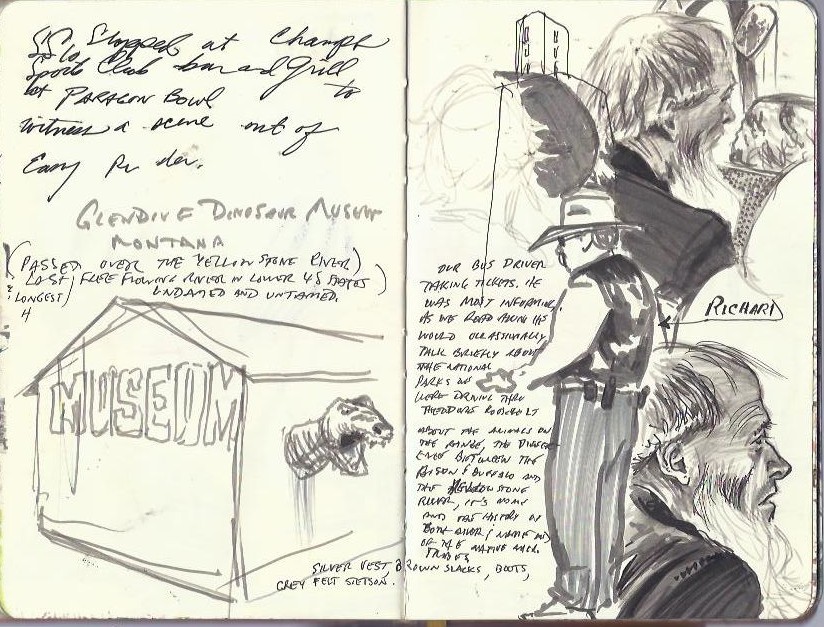 Stopped at Champs
Sports Club bar and Grill
at PARAGON BOWL to
witness a scene out of
Easy Rider.
GLENDIVE DINOSAUR MUSEUM
MONTANA
(PASSED OVER THE YELLOWSTONE RIVER)
LAST FREE FLOWING RIVER IN LOWER 48 STATES)
& LONGEST) UNDAMED AND UNTAMED.
MUSEUM
SILVER VEST, BROWN SLACKS, BOOTS,
GREY FELT STETSON.
OUR BUS DRIVER
TAKING TICKETS. HE
WAS MOST INFORMING
AS WE ROAD ALONG HE
WOULD OCCASSIONALLY
TALK BRIEFLY ABOUT
THE NATIONAL
PARKS WE
WERE DRIVING THRU
THEODORE ROOSEVELT
ABOUT THE ANIMALS ON
THE RANGE, THE DIFFER
ENCE BETWEEN THE
BISON & BUFFALO AND
THE YELLOWSTONE
RIVER, IT'S NAME
AND THE HISTORY OF
BOTH RIVER NAME AND
OF THE NATIVE AMER.
TRIBES
RICHARD